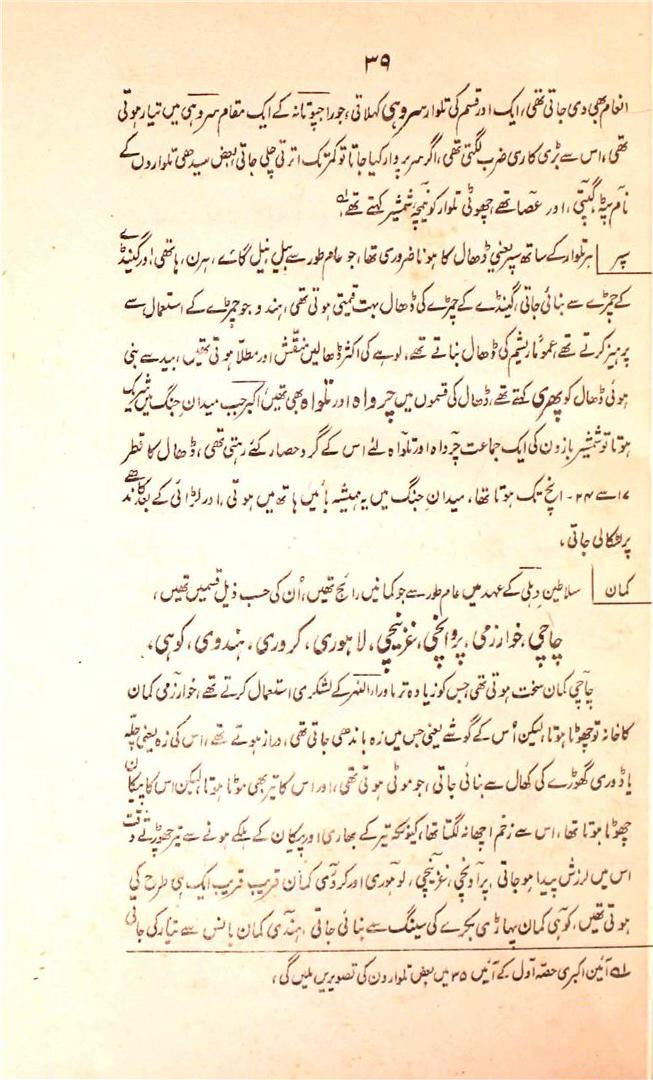 ۳۹
انعام بھی دی جاتی تھی، ایک اور قسم کی تلوار سروہی کہلاتی، جو راجپوتانہ کے ایک مقام سروہی میں تیار ہوتی
تھی، اس سے بڑی کاری ضرب لگتی تھی، اگر سر پر وار کیا جاتا تو کمر تک اترتی چلی جاتی بعض سیدھی تلواروں کے
نام پٹہ، گپتی، اور عصا تھے چھوٹی تلوار کو نیمچہ شمشیر کہتے تھے لہ
سپر | ہر تلوار کے ساتھ سپر یعنی ڈھال کا ہونا ضروری تھا، جو عام طور سے بیل، نیل گائے، ہرن، ہاتھی اور گینڈے
کے چمڑے سے بنائی جاتی، گینڈے کے چمڑے کی ڈھال بہت قیمتی ہوتی تھی، ہندو جو چمڑے کے استعمال سے
پرہیز کرتے تھے عموماً ریشم کی ڈھال بناتے تھے، لوہے کی اکثر ڈھالیں منقش اور مطلا ہوتی تھیں، بید سے بنی
ہوئی ڈھال کو پھری کہتے تھے، ڈھال کی قسموں میں چرواہ اور تلواہ بھی تھیں اکبر جب میدان جنگ میں شریک
ہوتا تو شمشیر بازون کی ایک جماعت چرواہ اور تلواہ لئے اس کے گرد حصار کئے رہتی تھی، ڈھال کا قطر
۱۷ سے ۲۴۔ انچ تک ہوتا تھا، میدان جنگ میں یہ ہمیشہ بائیں ہاتھ میں ہوتی، اور لڑائی کے بعد کاندھے
پر لٹکا لی جاتی،
کمان | سلاطین دہلی کے عہد میں عام طور سے جو کمانیں رائج تھیں، اُن کی حسب ذیل قسمیں تھیں،
چاچی، خوارزمی، پروانچی، غزنیچی، لاہوری، کروری، ہندوی، کوہی،
چاچی کمان سخت ہوتی تھی جس کو زیادہ تر ماوراء النہر کے لشکری استعمال کرتے تھے، خوارزمی کمان
کا خانہ تو چھوٹا ہوتا، لیکن اُس کے گوشے یعنی جس میں زہ باندھی جاتی تھی، دراز ہوتے تھے، اس کی زہ یعنی چلّہ
یا ڈوری گھوڑے کی کھال سے بنائی جاتی، جو موٹی ہوتی تھی، اور اس کا تیر بھی موٹا ہوتا، لیکن اس کا پیکان
چھوٹا ہوتا تھا، اس سے زخم اچھا نہ لگتا تھا، کیونکہ تیر کے بھاری اور پیکان کے ہلکے ہونے سے تیر چھوڑتے وقت
اس میں لرزش پیدا ہو جاتی، پروانچی، غزنیچی، لوہوری اور کروری کمان قریب قریب ایک ہی طرح کی
ہوتی تھیں، کوہی کمان پہاڑی بکرے کی سینگ سے بنائی جاتی، ہندی کمان بانس سے تیار کی جاتی
لہ آئین اکبری حصہ اول کے آئین ۳۵ میں بعض تلوارون کی تصویریں ملیں گی،